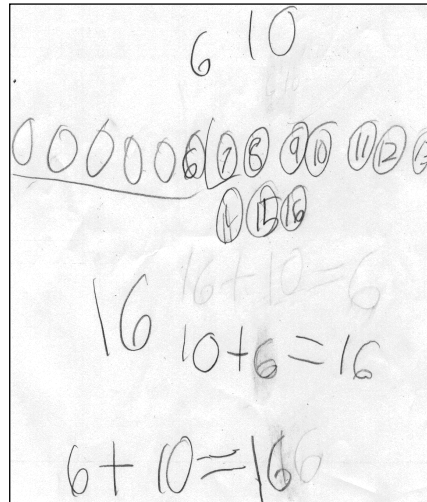 6 10
6 7 8 9 10 11 12 13
14 15 16
16+10=6
16 10+6=16
6+10=16